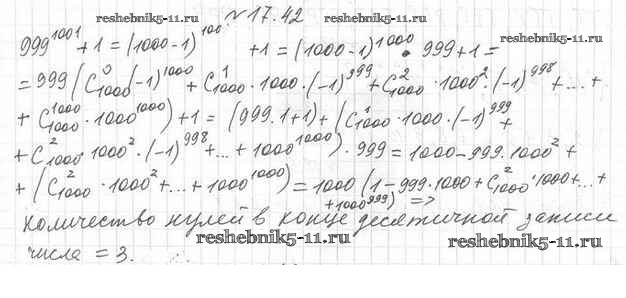 reshebnik5-11.ru № 17.42 reshebnik5-11.ru
999^1001 + 1 = (1000-1)^100 + 1 = (1000-1)^1000 · 999 + 1 =
= 999 (C^0_1000 (-1)^1000 + C^1_1000 · 1000 · (-1)^999 + C^2_1000 · 1000^2 · (-1)^998 + ... +
+ C^1000_1000 · 1000^1000) + 1 = (999 · 1 + 1) + (C^1_1000 · 1000 · (-1)^999 +
+ C^2_1000 · 1000^2 · (-1)^998 + ... + 1000^1000) · 999 = 1000 - 999 · 1000^2 +
+ (C^2_1000 · 1000^2 + ... + 1000^1000) = 1000 (1 - 999 · 1000 + C^2_1000 · 1000 + ... +
+ 1000^999) =>
количество нулей в конце десятичной записи
reshebnik5-11.ru
числа = 3.
reshebnik5-11.ru